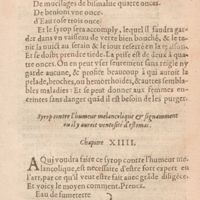 De mucilages de bismalue quatre onces.
De benioni vne once.
d'Eau rose trois onces
Et le syrop sera accomply, lequel il faudra garder dans vn vaisseau de verre bien bouché, & le tenir la nuict au serain & le iour reserré en la
Et se doibt prendre tiede. La prise est de deux à quatre onces. Et peut on sans danger seurement sans reigle ny garde aucune, & profite beaucoup à qui auroit la pelade, broches, ou hemorrhoides, & autres semblables maladies: Et peut on donner aux femmes enceintes sans danger quãd il est besoin de les purger.
Syrop contre l'humeur melancolique & signamment
ou il y auroit ventosité d'estomac.
Chapitre XIIII.
A Qui voudra faire ce syrop contre l'humeur melancolique, est necessaire d'estre fort expert en l'art, par ce qu'il veut estre fait auec grãde diligẽce.
Et voicy le moyen comment. Prenez.
Eau de fumeterre